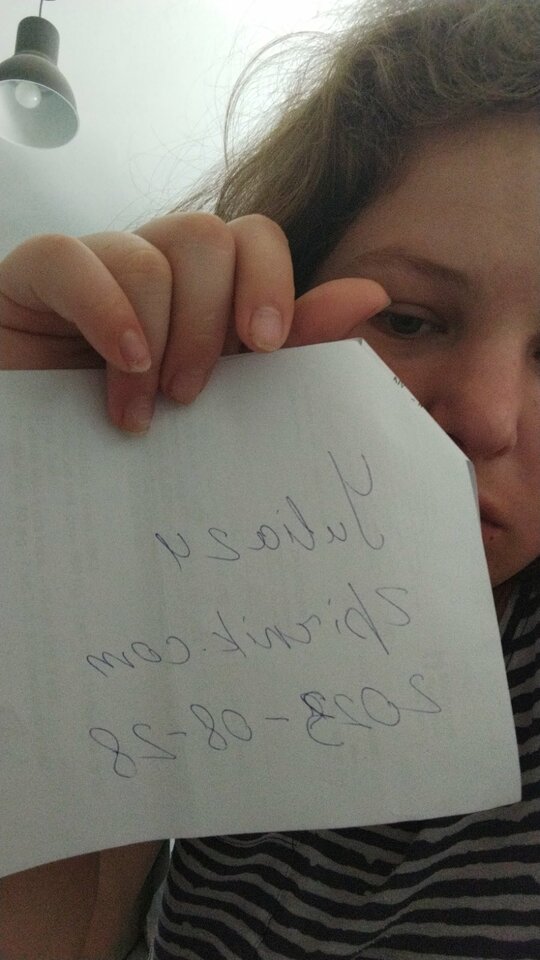 Yuliazu
zpirnik.com
2023-08-28